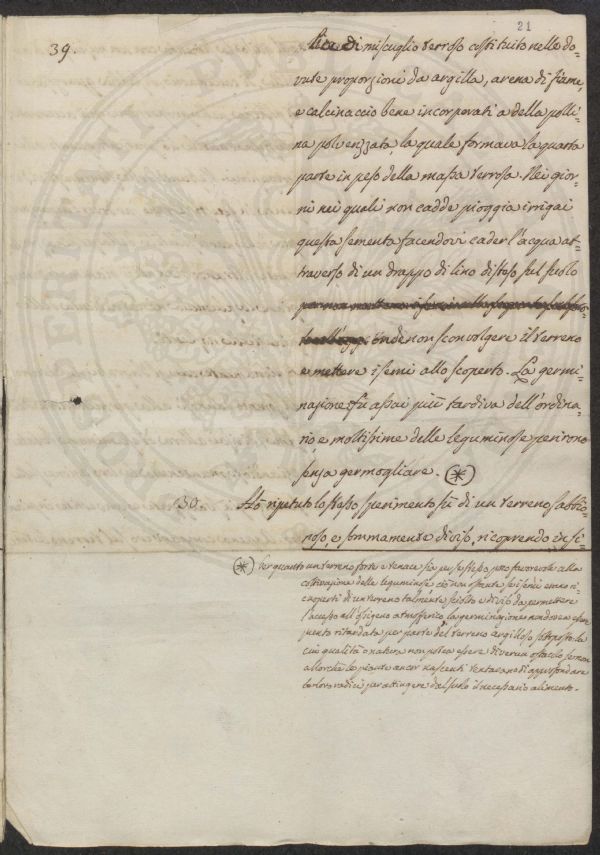 21
39.
lica di miscuglio terroso costituito nelle do=
vute proporzioni da argilla, arena di fiume,
e calcinaccio bene incorporati a della polli=
na polverizzata la quale formava la quarta
parte in peso della massa terrosa. Nei gior=
ni nei quali non cadde pioggia irrigai
questa sementa facendovi cader l'acqua at=
traverso di un drappo di lino disteso sul suolo
onde non sconvolgere il terreno
e mettere i semi allo scoperto. La germi=
nazione fù assai più tardiva dell'ordina=
rio, e moltissime delle leguminose perirono
senza germogliare. (*)
30. Hò ripetuto lo stesso sperimento sù di un terreno sabbio=
noso, e sommamente diviso, ricoprendo i si=
(*) Per quanto un terreno forte e tenace sia per se stesso poco favorevole alla
coltivazione delle leguminose ciò non ostante se i semi erano ri=
coperti di un terreno talmente sciolto e diviso da permettere
l'accesso all'ossigeno atmosferico, la germinazione non dovea essere
punto ritardata per parte del terreno argilloso sottoposto, la
cui qualità o natura non potea essere di verun ostacolo se non
allorchè le piante ancor nascenti tentavano di approfondare
le loro radici per attingere dal suolo il necessario alimento.